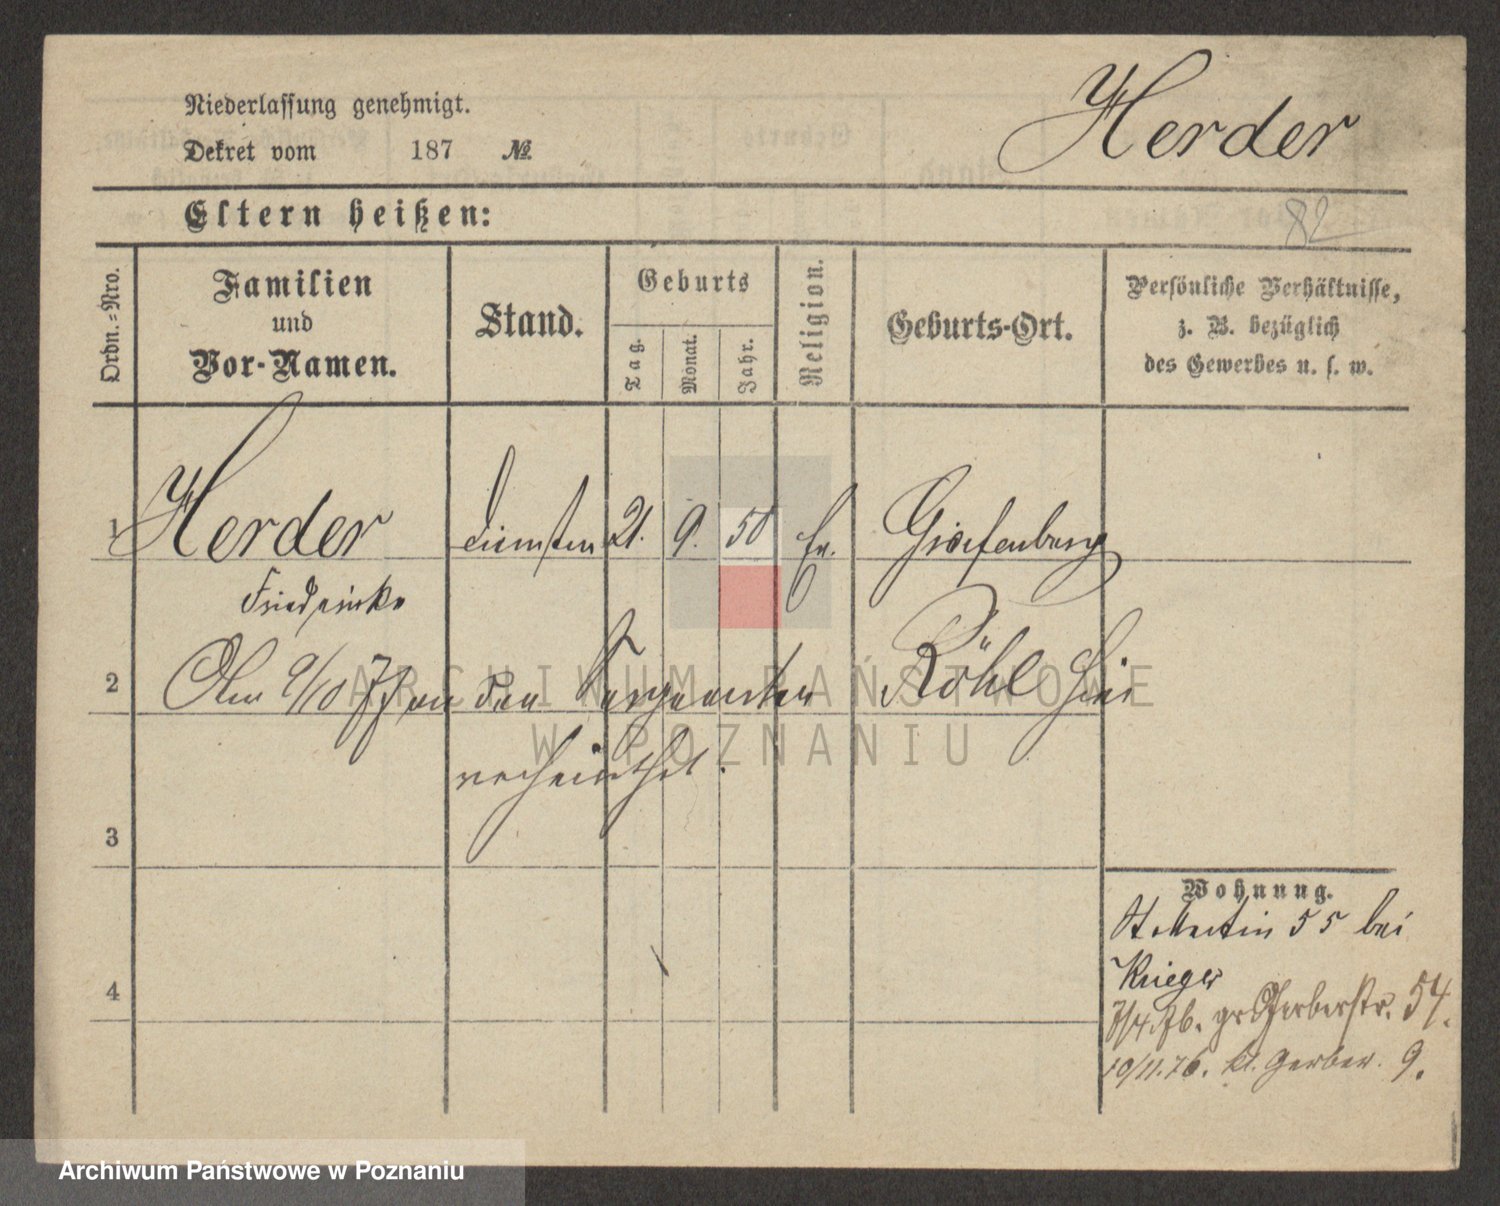 Herder
Niederlassung genehmigt.
Dekret vom 187 №
82
Eltern heißen:
Ordn.-Nro.
Familien
und
Vor-Namen.
Stand.
Geburts
Tag.
Monat.
Jahr.
Religion.
Geburts-Ort.
Persönliche Verhältnisse,
z. B. bezüglich
des Gewerbes u. s. w.
1 Herder 21. 9. 50 Ev. Greifenberg
Friedericke
2 Am 9/10 77 an den Sergeanten Röhl hier
verheirathet.
3
4
Wohnung.
St. Martin 55 bei
Krieger
7/4 76. gr Gerberstr. 54.
10/11. 76. kl. Gerber. 9.
ARCHIWUM PAŃSTWOWE
W POZNANIU
Archiwum Państwowe w Poznaniu